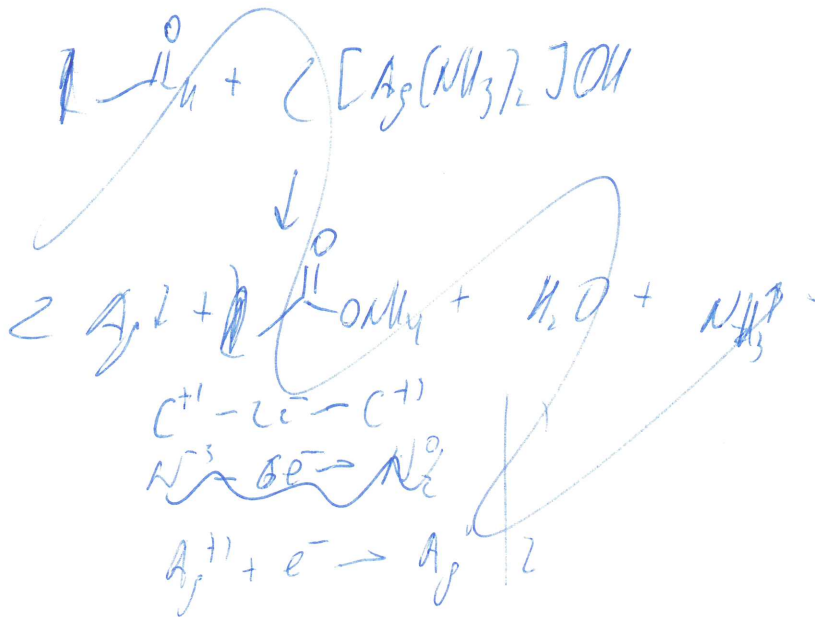 O
H + 2 [Ag(NH3)2]OH
↓
O
2 Ag↓ + ONH4 + H2O + NH3
C+1 - 2e- – C+3
N-3 - 6e- → N20
Ag+1 + e- → Ag 2